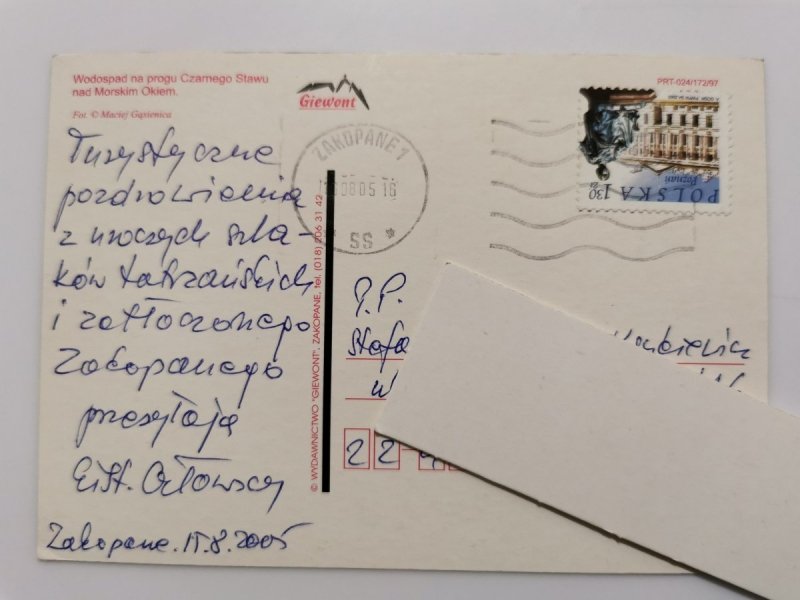 Wodospad na progu Czarnego Stawu
nad Morskim Okiem.
Fot. © Maciej Gąsienica
Giewont
PRT-024/172/97
ZAKOPANE 1
08 05 16
SS *
POLSKA 1,30 ZŁ
Poznań
Turystyczne
pozdrowienia
z uroczych szla-
ków tatrzańskich
i zatłoczonego
Zakopanego
przesyłają
Orłowscy
Zakopane. 15.8.2005
© WYDAWNICTWO "GIEWONT", ZAKOPANE, tel. (018) 206 31 42
P.P.
Stefa
W
22-